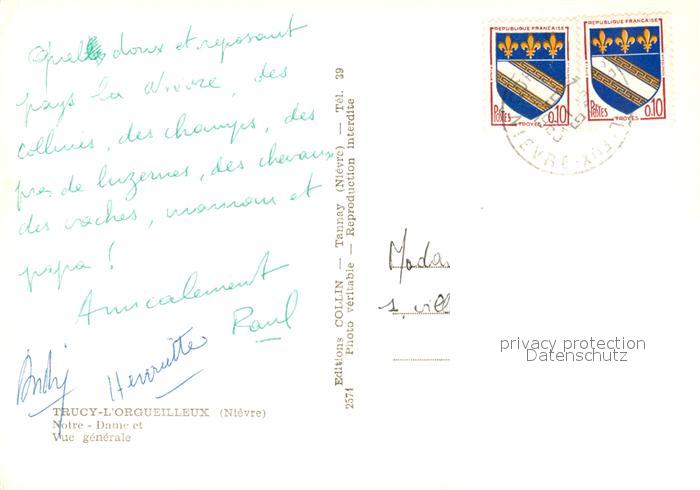 Quel doux et reposant
pays la Nièvre, des
collines, des champs, des
prés de luzernes, des chevaux
des vaches, maman et
papa !
Amicalement
Raul
André
Henriette
TRUCY-L'ORGUEILLEUX (Nièvre)
Notre - Dame et
Vue générale
2571 Editions COLLIN — Tannay (Nièvre) — Tél. 39
Photo véritable — Reproduction Interdite
REPUBLIQUE FRANÇAISE
POSTES 0,10
TROYES
REPUBLIQUE FRANÇAISE
POSTES 0,10
TROYES
NIEVRE
Mada
1, vill
privacy protection
Datenschutz